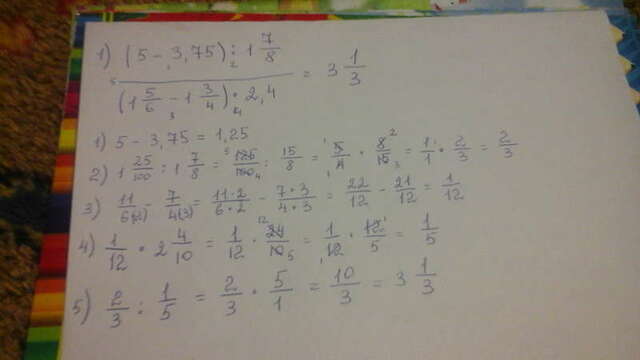 1) (5 - 3,75) : 1 7/8 / (1 5/6 - 1 3/4) · 2,4 = 3 1/3
1) 5 - 3,75 = 1,25
2) 1 25/100 : 1 7/8 = 125/100 : 15/8 = 5/4 · 8/15 = 1/1 · 2/3 = 2/3
3) 11/6(2) - 7/4(3) = 11·2/6·2 - 7·3/4·3 = 22/12 - 21/12 = 1/12
4) 1/12 · 2 4/10 = 1/12 · 24/10 = 1/12 · 12/5 = 1/5
5) 2/3 : 1/5 = 2/3 · 5/1 = 10/3 = 3 1/3